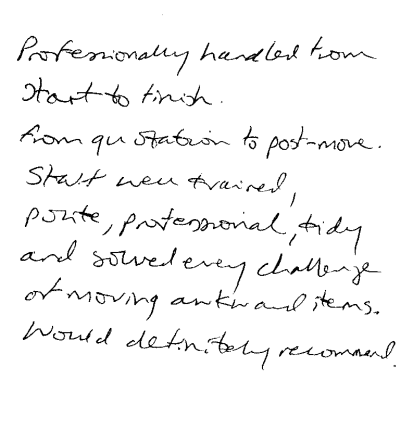 Professionally handled from
start to finish.
from quotation to post-move.
Staff well trained,
polite, professional, tidy
and solved every challenge
of moving awkward items.
Would definitely recommend.